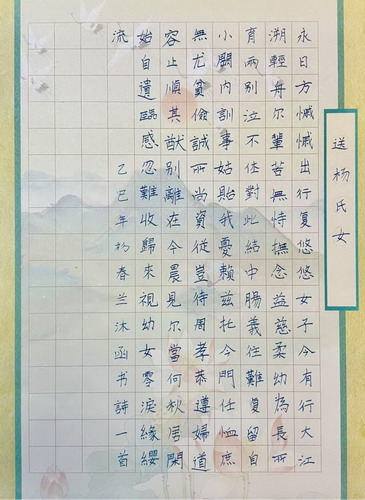 送杨氏女
永日方慽慽出行复悠悠女子今有行大江
溯輕舟尔輩苦無恃撫念益慈柔幼為長所
育兩别泣不休對此結中腸義往難復留自
小闕内訓事姑貽我憂賴兹托今門任恤庶
無尤貧儉誠所尚資從豈待周孝恭遵婦道
容止順其猷别離在今晨見尔當何秋居閑
始自遣臨感忽難收歸來視幼女零淚緣纓
流 乙巳年杨春兰沐函书詩一首